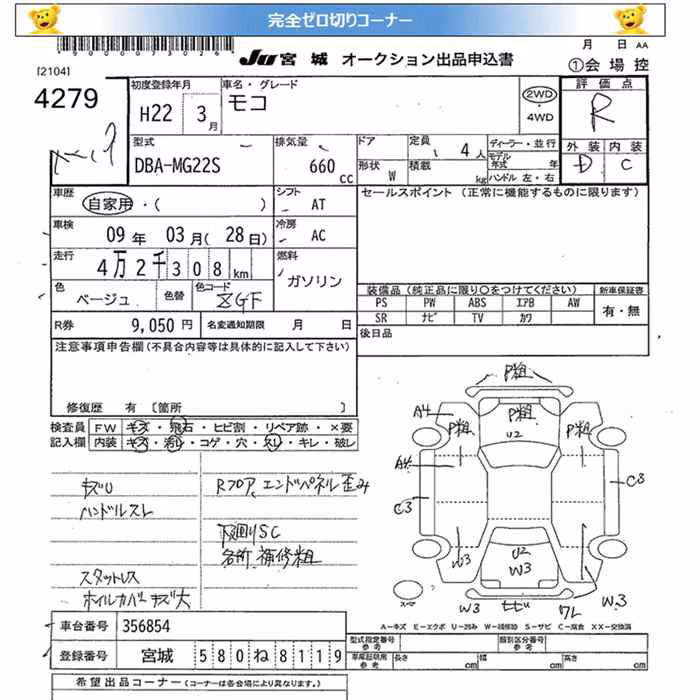 完全ゼロ切りコーナー
月 日 AA
[2104]
JU 宮城 オークション出品申込書
①会場控
4279
初度登録年月
H22 3月
車名・グレード
モコ
2WD
・4WD
評価点
R
外装 内装
D C
型式
DBA-MG22S
排気量
660 cc
ドア
形状 W
定員
4人
積載
kg
ディーラー・並行
モデル年式 年
ハンドル 左・右
車歴
自家用・( )
シフト
AT
セールスポイント (正常に機能するものに限ります)
車検
09年 03月(28日)
冷房
AC
走行
4万2千308km
燃料
ガソリン
色
ベージュ
色替
色コード
ZGF
装備品 (純正品に限り○をつけてください)
新車保証書
PS PW ABS エアB AW
SR ナビ TV カワ
有・無
R券 9,050円
名変通知期限 月 日
後日品
注意事項申告欄(不具合内容等は具体的に記入して下さい)
修復歴 有 [箇所 ]
検査員記入欄
FW キズ・飛石・ヒビ割・リペア跡・×要
内装 キズ・汚レ・コゲ・穴・スレ・キレ・破レ
キズU
ハンドルスレ
スタットレス
ホイルカバーキズ大
Rフロア、エンドパネル歪み
下廻りSC
各所補修粗
P粗
A4
P粗
P粗
P粗
U2
A4
C3
C3
W3
U2
W3
W3
W3
ワレ
W3
スペアー
A-キズ E-エクボ U-凹み W-補修跡 S-サビ C-腐食 XX-交換済
車台番号 356854
型式指定番号 参考
類別区分番号 参考
登録番号 宮城 580ね8119
車庫証明用 参考
長さ cm
幅 cm
高さ cm
希望出品コーナー(コーナーは各会場により異なります。)